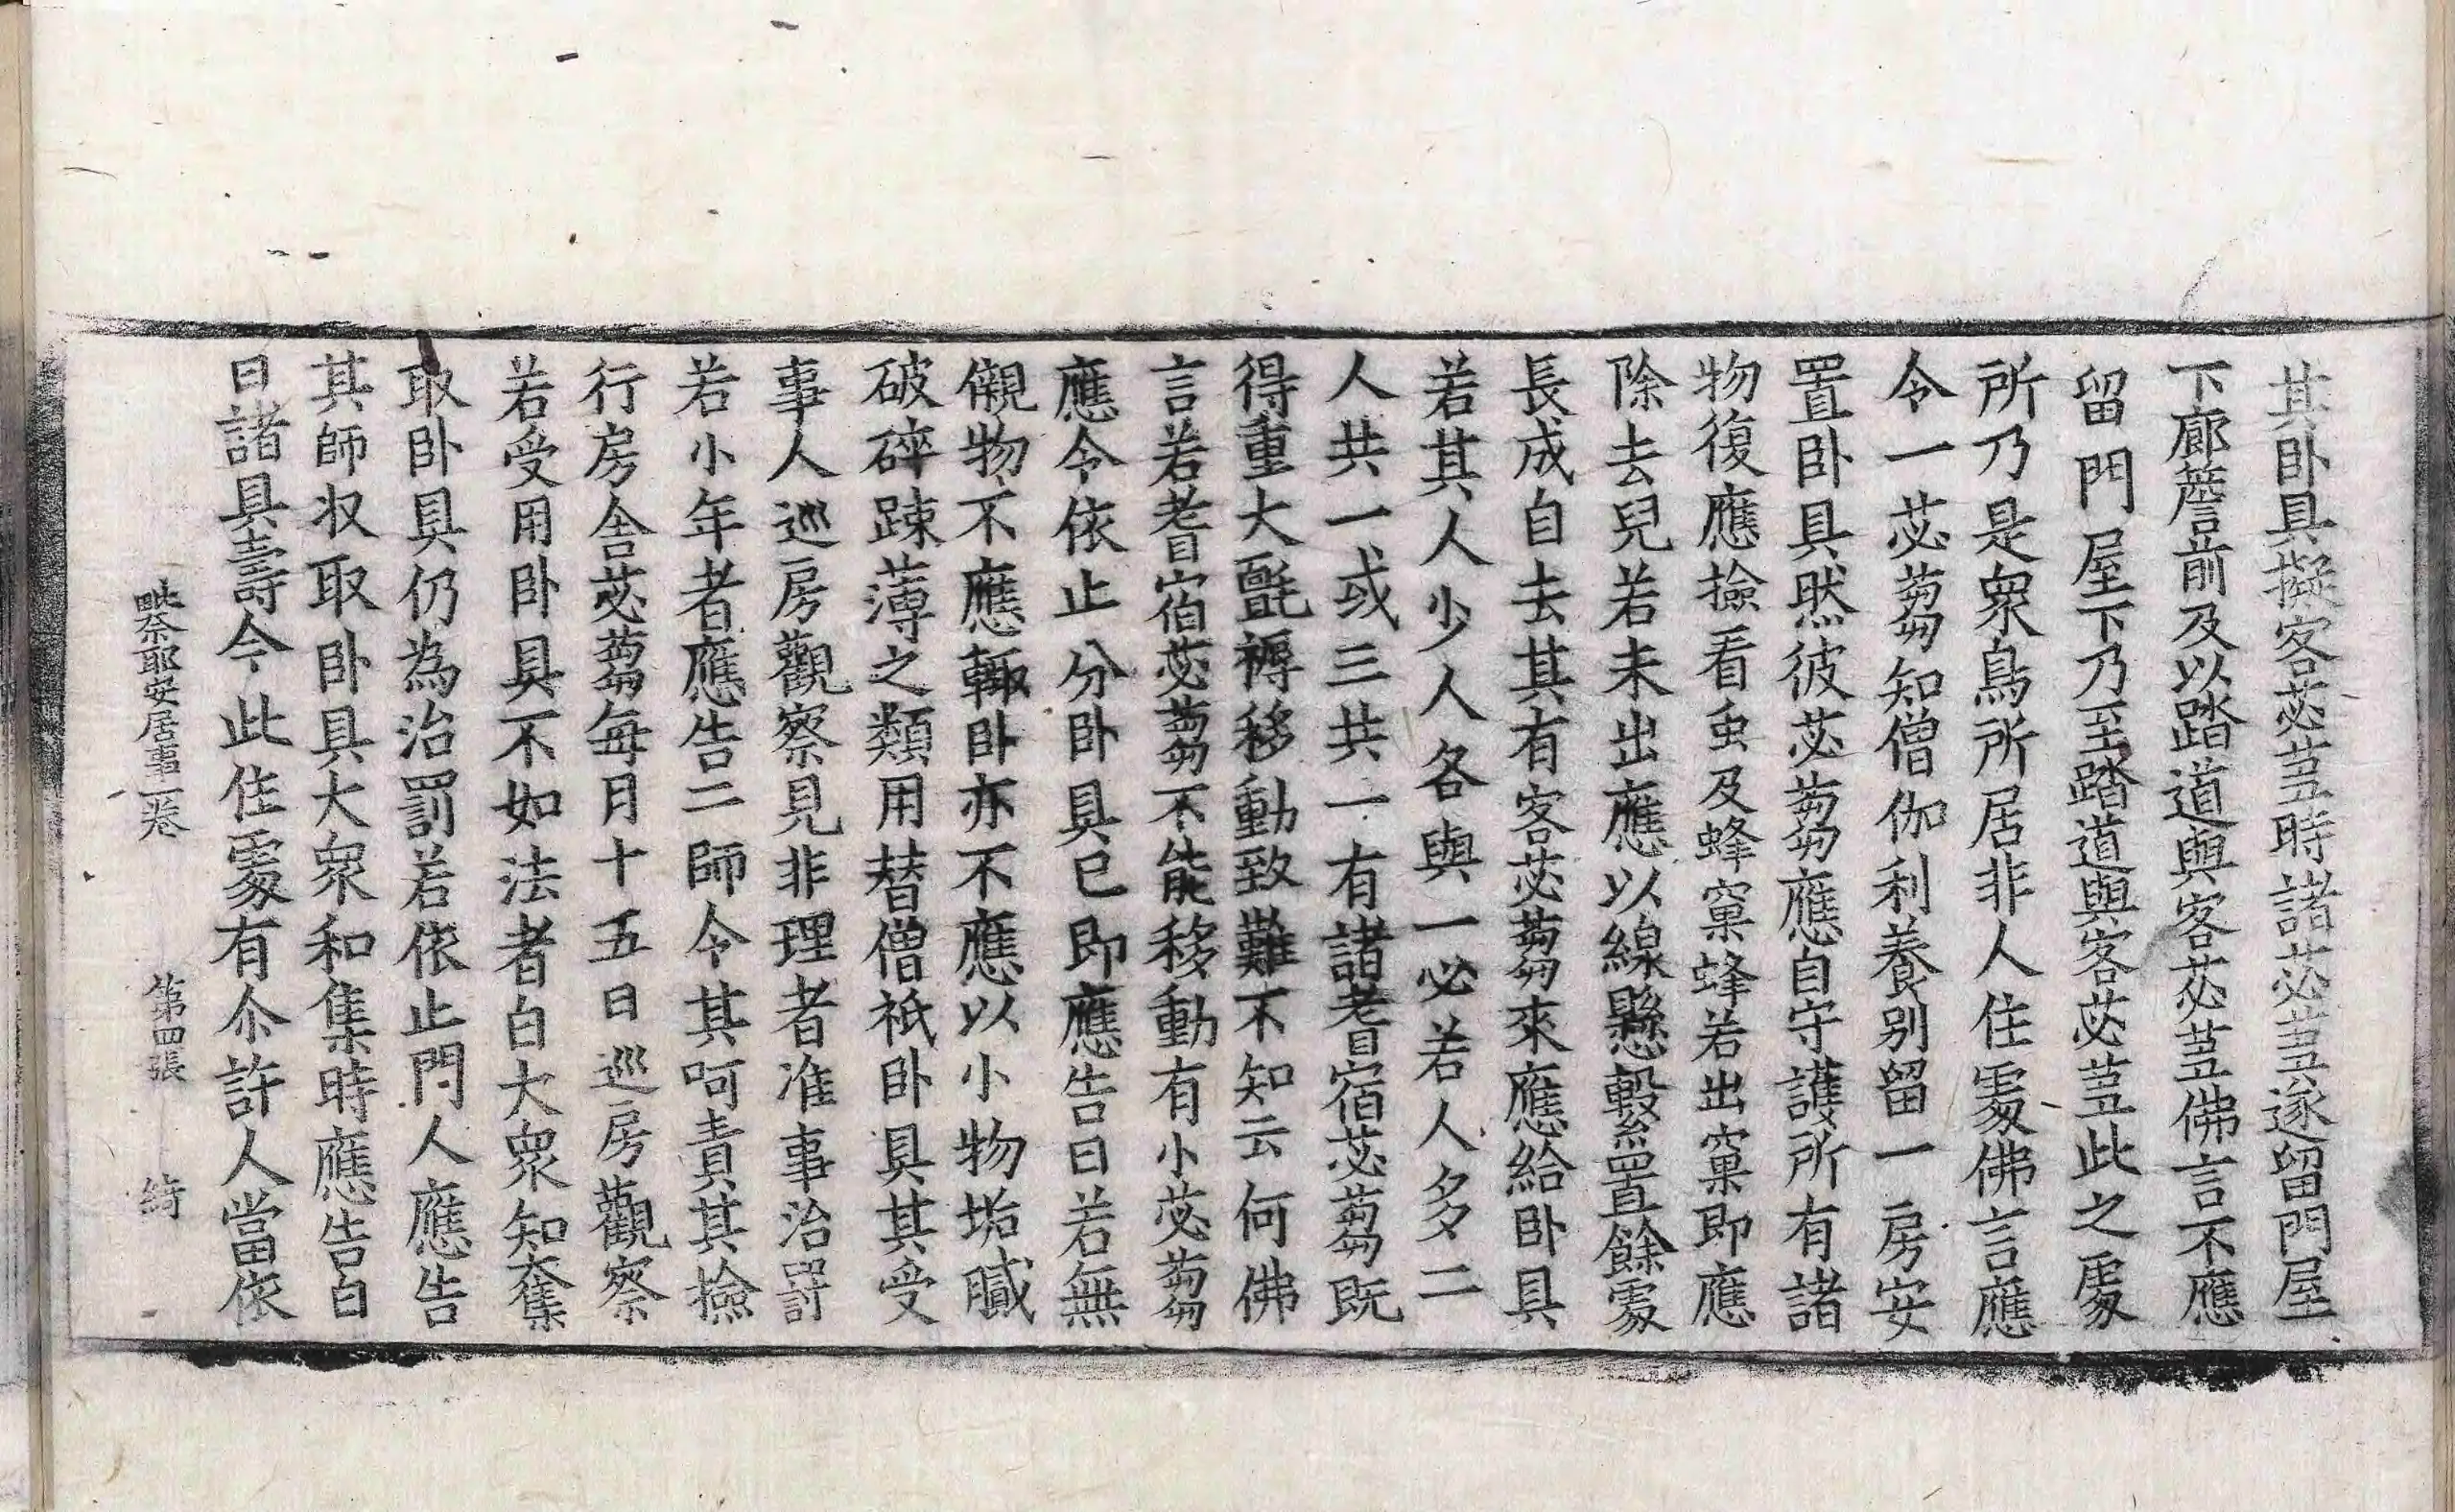 其卧具擬客苾蒭時諸苾蒭遂留門屋
下廊簷前及以踏道與客苾蒭佛言不應
留門屋下乃至踏道與客苾蒭此之處
所乃是衆鳥所居非人住處佛言應
令一苾蒭知僧伽利養別留一房安
置卧具然彼苾蒭應自守護所有諸
物復應撿看虫及蜂窠蜂若出窠即應
除去兒若未出應以線懸繫置餘處
長成自去其有客苾蒭來應給卧具
若其人少人各與一必若人多二
人共一或三共一有諸耆宿苾蒭既
得重大氈褥移動致難不知云何佛
言若耆宿苾蒭不能移動有小苾蒭
應令依止分卧具已即應告曰若無
儭物不應輙卧亦不應以小物垢膩
破碎踈薄之類用替僧祇卧具其受
事人巡房觀察見非理者准事治罸
若小年者應告二師令其呵責其撿
行房舍苾蒭每月十五日巡房觀察
若受用卧具不如法者白大衆知奪
取卧具仍為治罰若依止門人應告
其師収取卧具大衆和集時應告白
曰諸具壽今此住處有尒許人當依
毗奈耶安居事一卷　第四張　綺